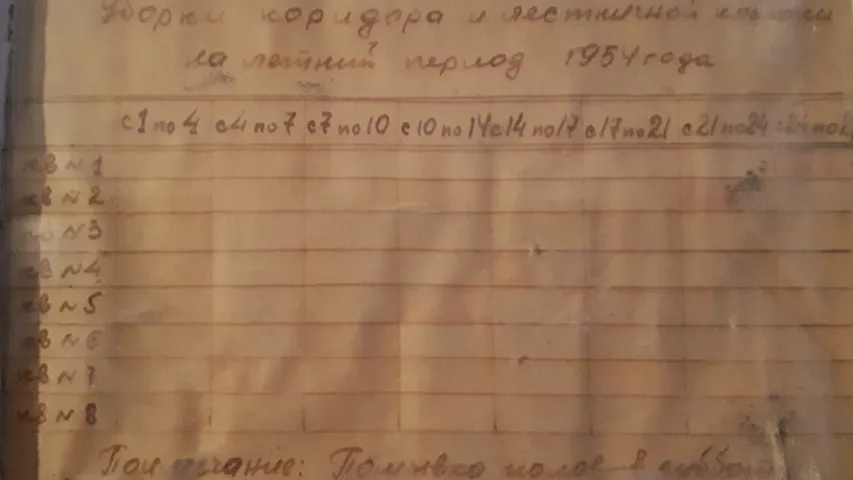 Уборки коридора и лестничной клетки
на летний период 1954 года
с 1 по 4 с 4 по 7 с 7 по 10 с 10 по 14 с 14 по 17 с 17 по 21 с 21 по 24 с 24 по
кв N 1
кв N 2
кв N 3
кв N 4
кв N 5
кв N 6
кв N 7
кв N 8
Примечание: Помывка полов в субботу